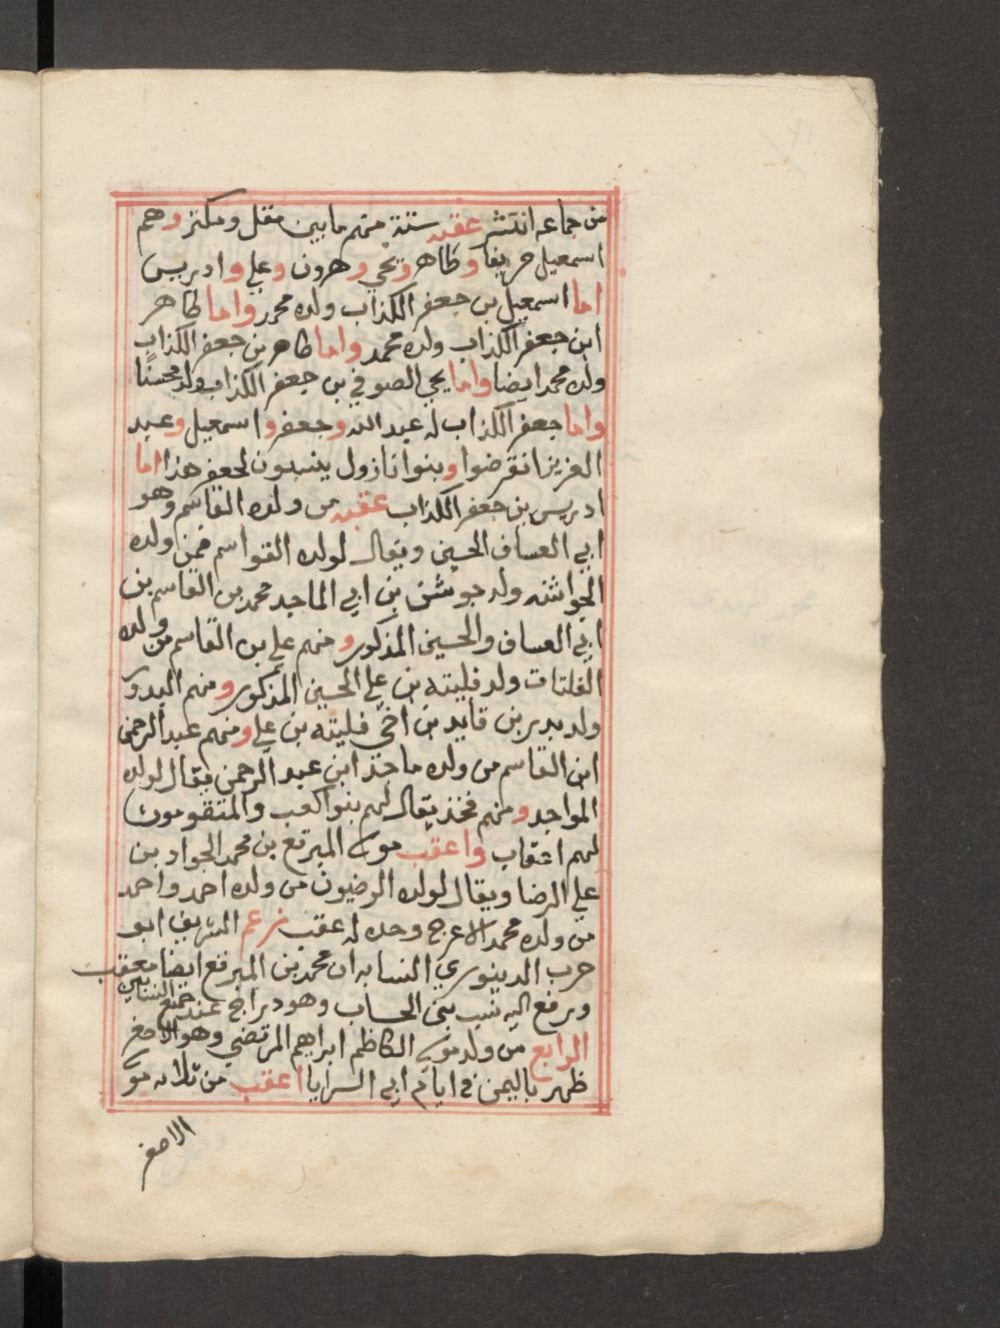 من جماعه انتشر عقبه ستة منهم ما بين مقل ومكثر وهم
اسمعيل حريفا وطاهر ويحي وهرون وعلي وادريس
اما اسمعيل بن جعفر الكذاب ولده محمد واما طاهر
ابن جعفر الكذاب ولده محمد واما طاهر بن جعفر الكذاب
ولده محمد ايضا واما يحي الصوفي بن جعفر الكذاب ولد محسنا
واما جعفر الكذاب له عبد الله وجعفر واسمعيل وعبد
العزيز انقرضوا وبنوا نازول ينسبون لجعفر هذا اما
ادريس بن جعفر الكذاب عقبه من ولده القاسم وهو
ابي العساف الحسين ويقال لولده القواسم فمن ولده
الجواشنه ولد جوشن بن ابي الماجد محمد بن القاسم بن
ابي العساف والحسين المذكور ومنهم علي بن القاسم من ولده
الفلتات ولد فليته بن علي الحسين المذكور ومنهم البدور
ولد بدر بن قايد بن اخي فليته بن علي ومنهم عبد الرحمن
ابن القاسم من ولده ماجد ابن عبد الرحمن يقال لولده
المواجد ومنهم فخذ يقال لهم بنوا كعب والمتقومون
لهم اعقاب واعقب موسى المبرقع بن محمد الجواد بن
علي الرضا ويقال لولده الرضيون من ولده احمد واحمد
من ولده محمد الاعرج وحده له عقب زعم الشريف ابو
حرب الدينوري النسابه ان محمد بن المبرقع ايضا معقب
ويرفع اليه نسب بني الخشاب وهو دراج عند جميع النسابين
الرابع من ولد موسى الكاظم ابراهيم المرتضي وهو الاصغر
ظهر باليمن في ايام ابي السرايا اعقب من ثلاثه مو
الاصغر